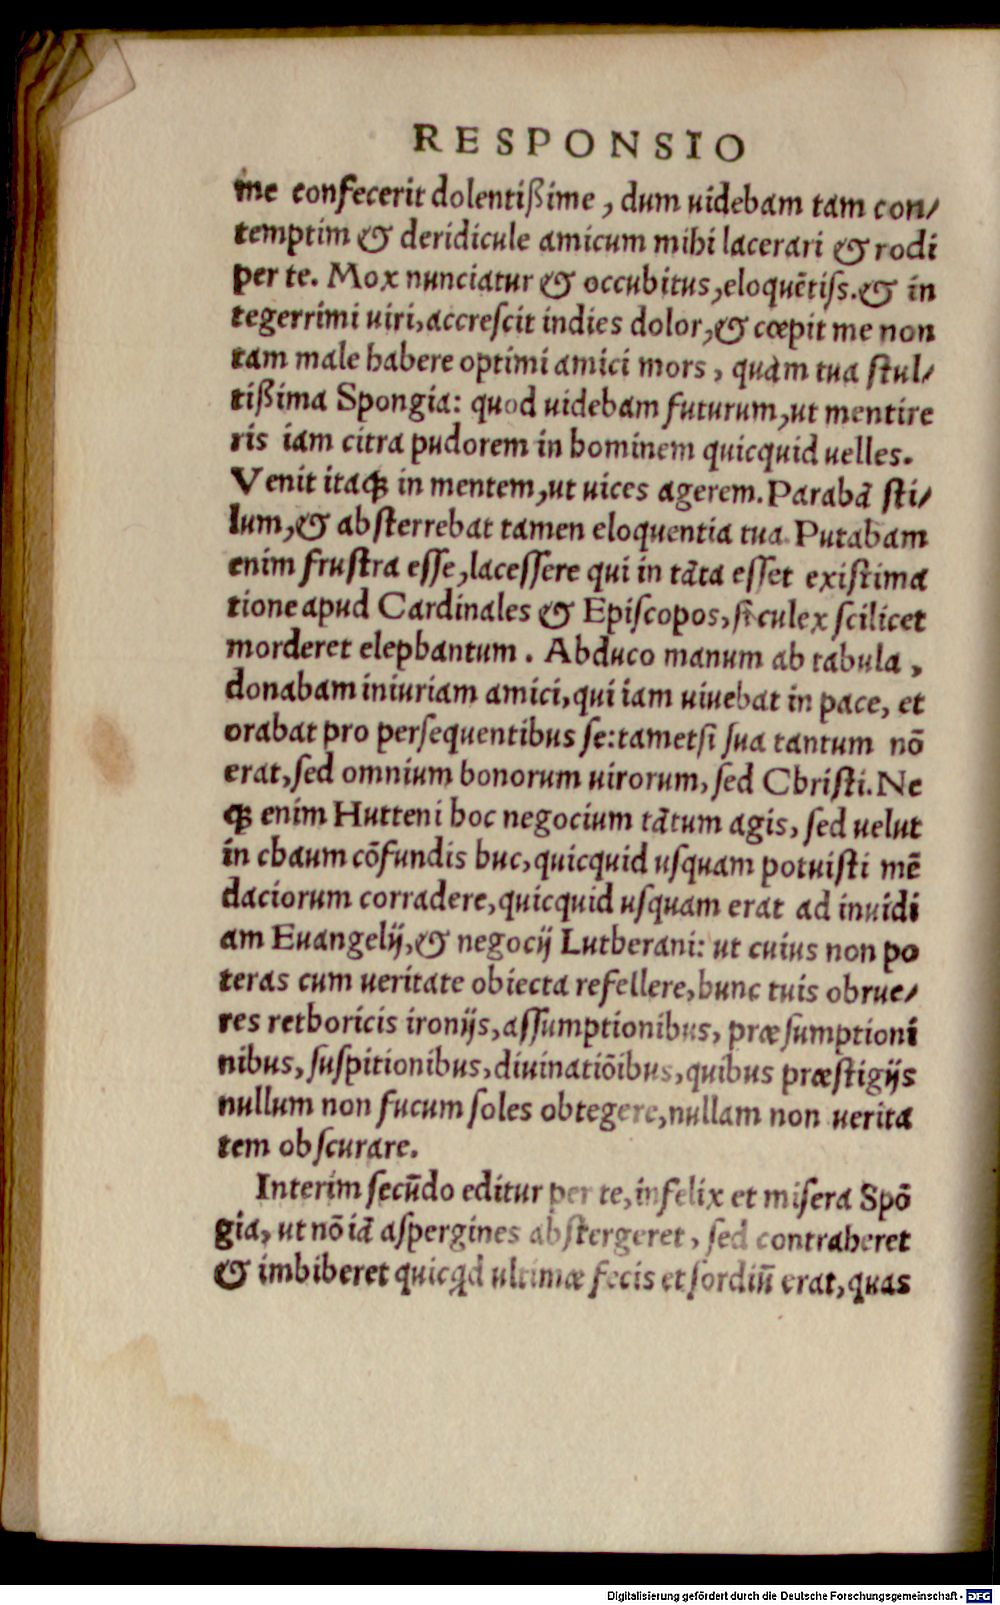 RESPONSIO
me confecerit dolentißime, dum uidebam tam con/
temptim & deridicule amicum mihi lacerari & rodi
per te. Mox nunciatur & occubitus, eloquẽtiſs. & in
tegerrimi uiri, accreſcit indies dolor, & cœpit me non
tam male habere optimi amici mors, quàm tua ſtul/
tißima Spongia: quod uidebam futurum, ut mentire
ris iam citra pudorem in hominem quicquid uelles.
Venit itaqꝫ in mentem, ut uices agerem. Parabã ſti/
lum, & abſterrebat tamen eloquentia tua. Putabam
enim fruſtra eſſe, laceſſere qui in tãta eſſet exiſtima
tione apud Cardinales & Epiſcopos, ſi culex ſcilicet
morderet elephantum. Abduco manum ab tabula,
donabam iniuriam amici, qui iam uiuebat in pace, et
orabat pro perſequentibus ſe: tametſi ſua tantum nõ
erat, ſed omnium bonorum uirorum, ſed Chriſti. Ne
qꝫ enim Hutteni hoc negocium tãtum agis, ſed uelut
in chaum cõfundis huc, quicquid uſquam potuiſti mẽ
daciorum corradere, quicquid uſquam erat ad inuidi
am Euangelij, & negocij Lutherani: ut cuius non po
teras cum ueritate obiecta refellere, hunc tuis obrue/
res rethoricis ironijs, aſſumptionibus, præſumptioni
nibus, ſuſpitionibus, diuinatiõibus, quibus præſtigijs
nullum non fucum ſoles obtegere, nullam non uerita
tem obſcurare.
Interim ſecũdo editur per te, infelix et miſera Spõ
gia, ut nõ iã aſpergines abſtergeret, ſed contraheret
& imbiberet quicꝗd ultimæ fecis et ſordiũ erat, quas
Digitalisierung gefördert durch die Deutsche Forschungsgemeinschaft - DFG